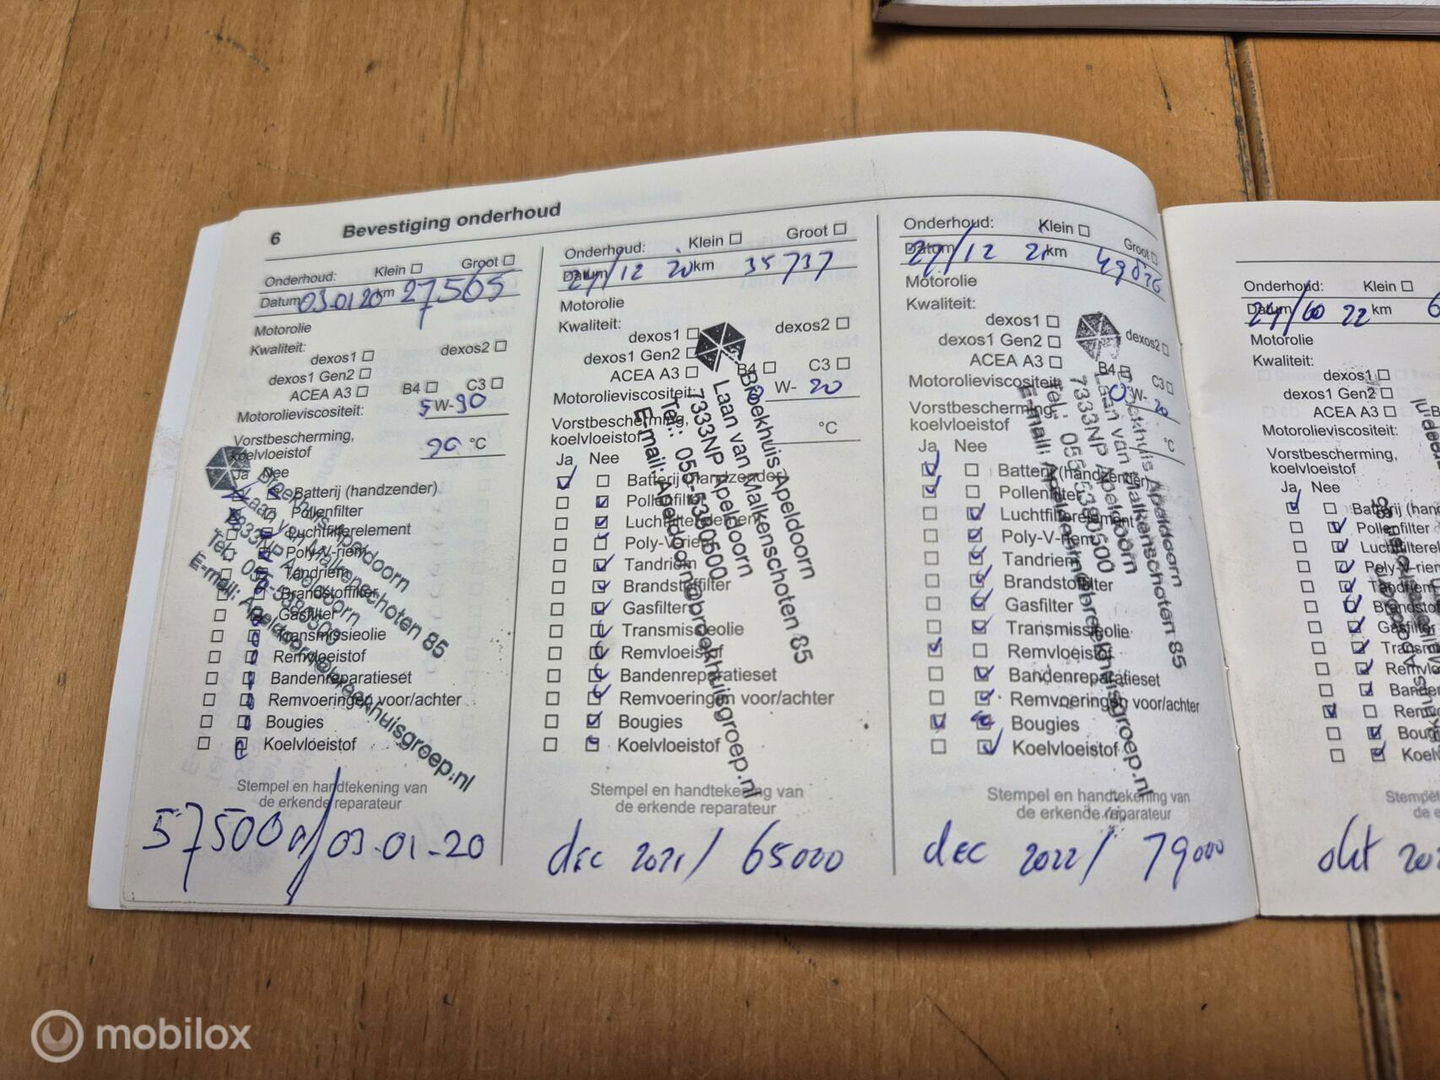 6 Bevestiging onderhoud
Onderhoud: Klein Groot
Datum 03.01 20 km 27565
Motorolie
Kwaliteit:
dexos1 dexos2
dexos1 Gen2
ACEA A3 B4 C3
Motorolieviscositeit: 5 W-30
Vorstbescherming,
koelvloeistof °C
Ja Nee
Batterij (handzender)
Pollenfilter
Luchtfilterelement
Poly-V-riem
Tandriem
Brandstoffilter
Gasfilter
Transmissieolie
Remvloeistof
Bandenreparatieset
Remvoeringen voor/achter
Bougies
Koelvloeistof
Broekhuis Apeldoorn
Laan van Malkenschoten 85
7333NP Apeldoorn
Tel.: 055-5380500
E-mail: Apeldoorn@broekhuisgroep.nl
Stempel en handtekening van
de erkende reparateur
57500 / 03-01-20
Onderhoud: Klein Groot
Datum 27/12 20 km 35737
Motorolie
Kwaliteit:
dexos1 dexos2
dexos1 Gen2
ACEA A3 B4 C3
Motorolieviscositeit: 0 W- 20
Vorstbescherming,
koelvloeistof °C
Ja Nee
Batterij (handzender)
Pollenfilter
Luchtfilterelement
Poly-V-riem
Tandriem
Brandstoffilter
Gasfilter
Transmissieolie
Remvloeistof
Bandenreparatieset
Remvoeringen voor/achter
Bougies
Koelvloeistof
Broekhuis Apeldoorn
Laan van Malkenschoten 85
7333NP Apeldoorn
Tel.: 055-5380500
E-mail: Apeldoorn@broekhuisgroep.nl
Stempel en handtekening van
de erkende reparateur
dec 2021 / 65000
Onderhoud: Klein Groot
Datum 27/12 21 km
Motorolie
Kwaliteit:
dexos1 dexos2
dexos1 Gen2
ACEA A3 B4 C3
Motorolieviscositeit 0 W- 20
Vorstbescherming,
koelvloeistof °C
Ja Nee
Batterij (handzender)
Pollenfilter
Luchtfilterelement
Poly-V-riem
Tandriem
Brandstoffilter
Gasfilter
Transmissieolie
Remvloeistof
Bandenreparatieset
Remvoeringen voor/achter
Bougies
Koelvloeistof
Broekhuis Apeldoorn
Laan van Malkenschoten 85
7333NP Apeldoorn
Tel.: 055-5380500
E-mail: Apeldoorn@broekhuisgroep.nl
Stempel en handtekening van
de erkende reparateur
dec 2022 / 79000
Onderhoud: Klein
Datum 22 km 6
Motorolie
Kwaliteit:
dexos1
dexos1 Gen2
ACEA A3
Motorolieviscositeit:
Vorstbescherming,
koelvloeistof
Ja Nee
Batterij (hand
Pollenfilter
Luchtfilterel
Poly-V-riem
Tandriem
Brandsto
Gasfilter
Transm
Remvlo
Banden
Rem
Boug
Koelv
Stempel
de e
okt 202
mobilox